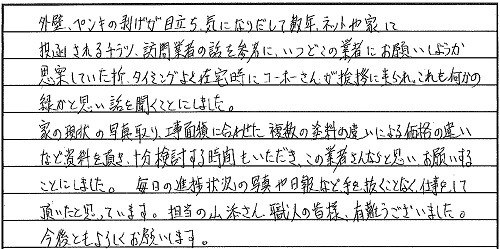 外壁、ペンキの剥げが目立ち、気になりだして数年、ネットや家に
投函されるチラシ、訪問業者の話を参考に、いつどこの業者にお願いしようか
思案していた折、タイミングよく在宅時にコーホーさんが挨拶に来られ、これも何かの
縁かと思い話を聞くことにしました。
家の現状の写真取り、工事面積に合わせた複数の塗料の違いによる価格の違い
など資料を頂き、十分検討する時間もいただき、この業者さんならと思いお願いする
ことにしました。 毎日の進捗状況の写真や日報など手を抜くことなく、仕事して
頂いたと思っています。担当の山添さん、職人の皆様、有難うございました。
今後ともよろしくお願いします。